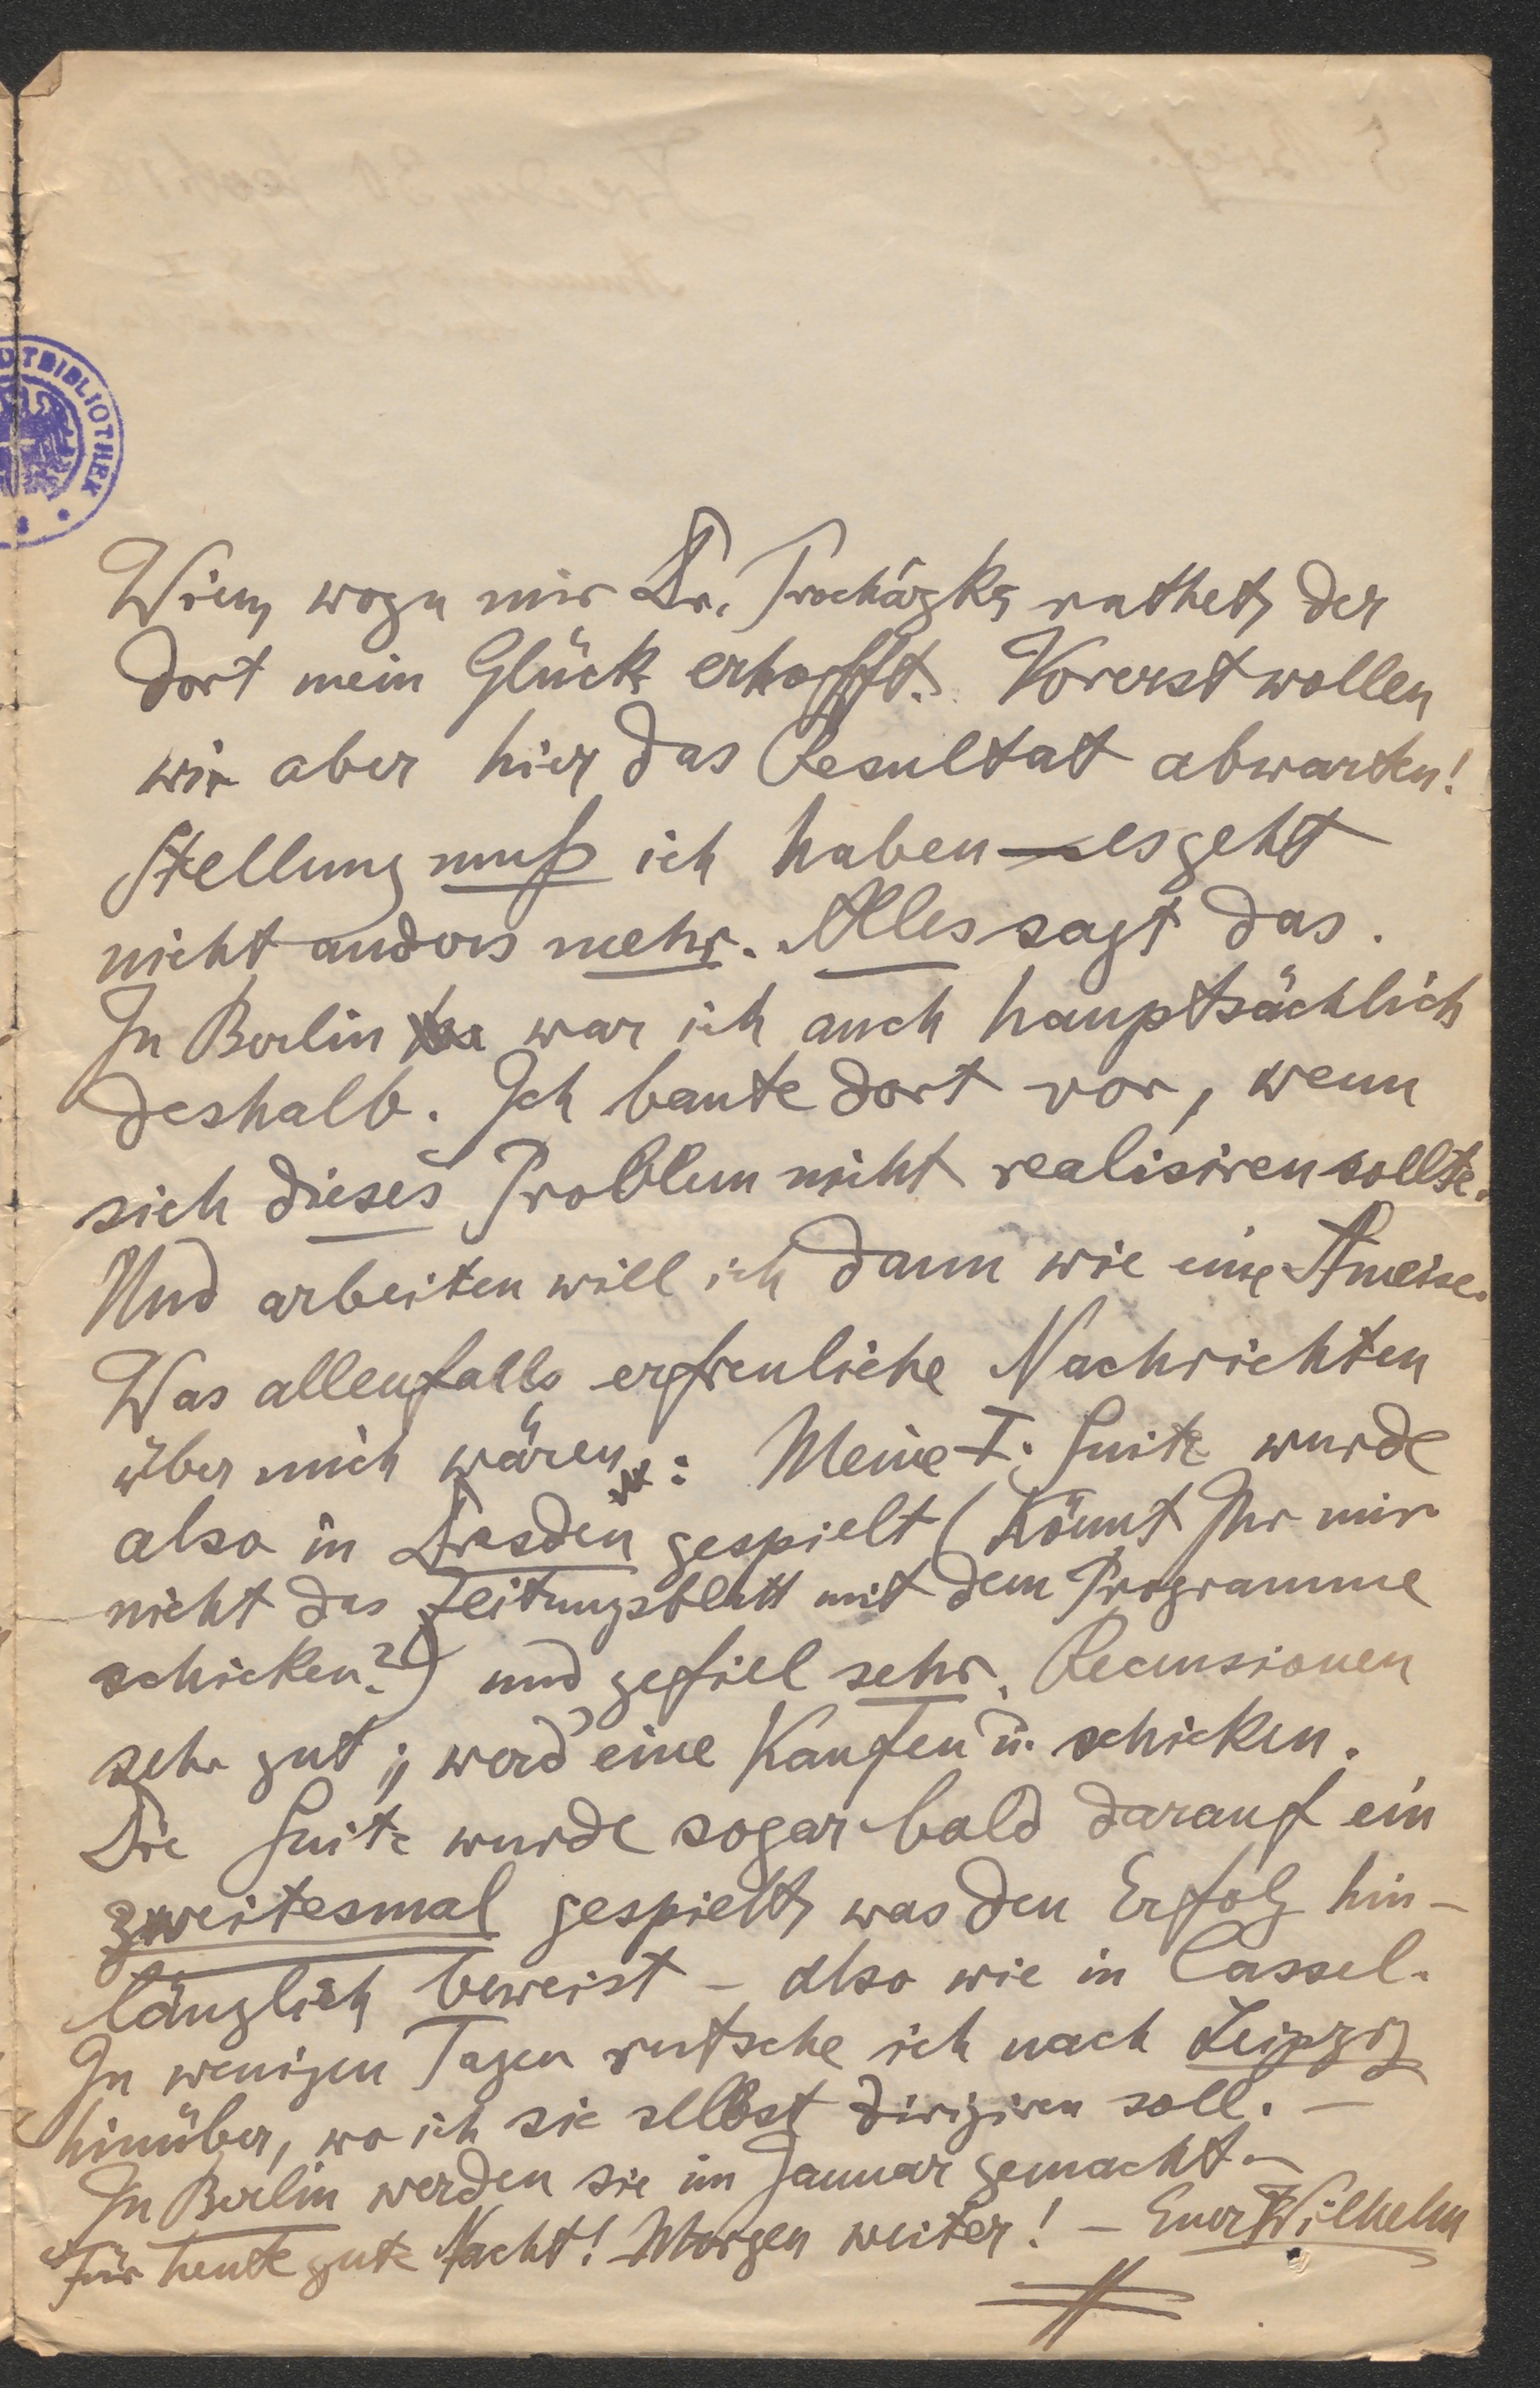 TBIBLIOTHEK
Wien, wozu mir Dr. Procházka rathet, der
dort mein Glück erhofft. Vorerst wollen
wir aber hier das Resultat abwarten!
Stellung muß ich haben — es geht
nicht anders mehr. Alles sagt das.
In Berlin war ich auch hauptsächlich
deshalb. Ich baute dort vor, wenn
sich dieses Problem nicht realisiren sollte.
Und arbeiten will ich dann wie eine Ameise.
Was allenfalls erfreuliche Nachrichten
über mich wären: Meine I. Suite wurde
also in Dresden gespielt (Könnt Ihr mir
nicht das Zeitungsblatt mit dem Programme
schicken?) und gefiel sehr. Recensionen
sehr gut; werd' eine Kaufen u. schicken.
Die Suite wurde sogar bald darauf ein
zweitesmal gespielt, was den Erfolg hin-
länglich beweist – also wie in Cassel.
In wenigen Tagen rutsche ich nach Leipzig
hinüber, wo ich sie selbst dirigiren soll. –
In Berlin werden sie im Januar gemacht. –
Für heute gute Nacht! Morgen weiter! – Euer Wilhelm